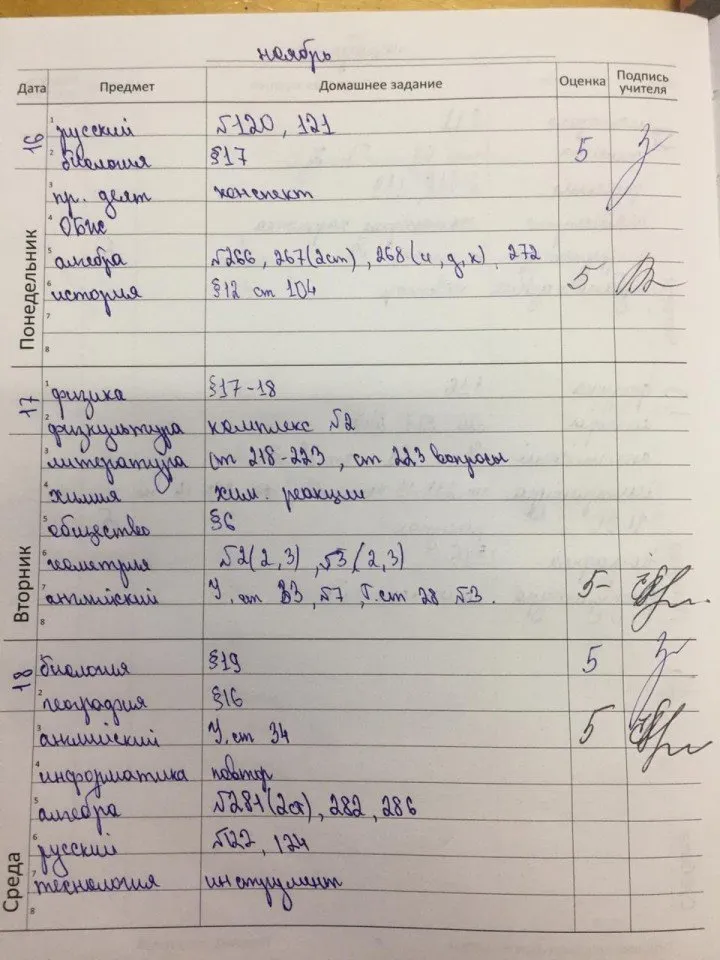 ноябрь
Дата Предмет Домашнее задание Оценка Подпись учителя
16
Понедельник
1 русский №120, 121
2 биология §17 5
3 пр. деят конспект
4 ОБиС
5 алгебра №266, 267(2ст), 268(и,д,к), 272
6 история §12 ст 104 5
7
8
17
Вторник
1 физика §17-18
2 физкультура комплекс №2
3 литература ст 218-223, ст 223 вопросы
4 химия хим. реакции
5 общество §6
6 геометрия №2(2,3), №3(2,3)
7 английский У. ст 33, №7, Г. ст 28 №3. 5-
8
18
Среда
1 биология §19 5
2 география §16
3 английский У. ст 34 5
4 информатика повтор
5 алгебра №281(2ст), 282, 286
6 русский №122, 124
7 технология инструмент
8